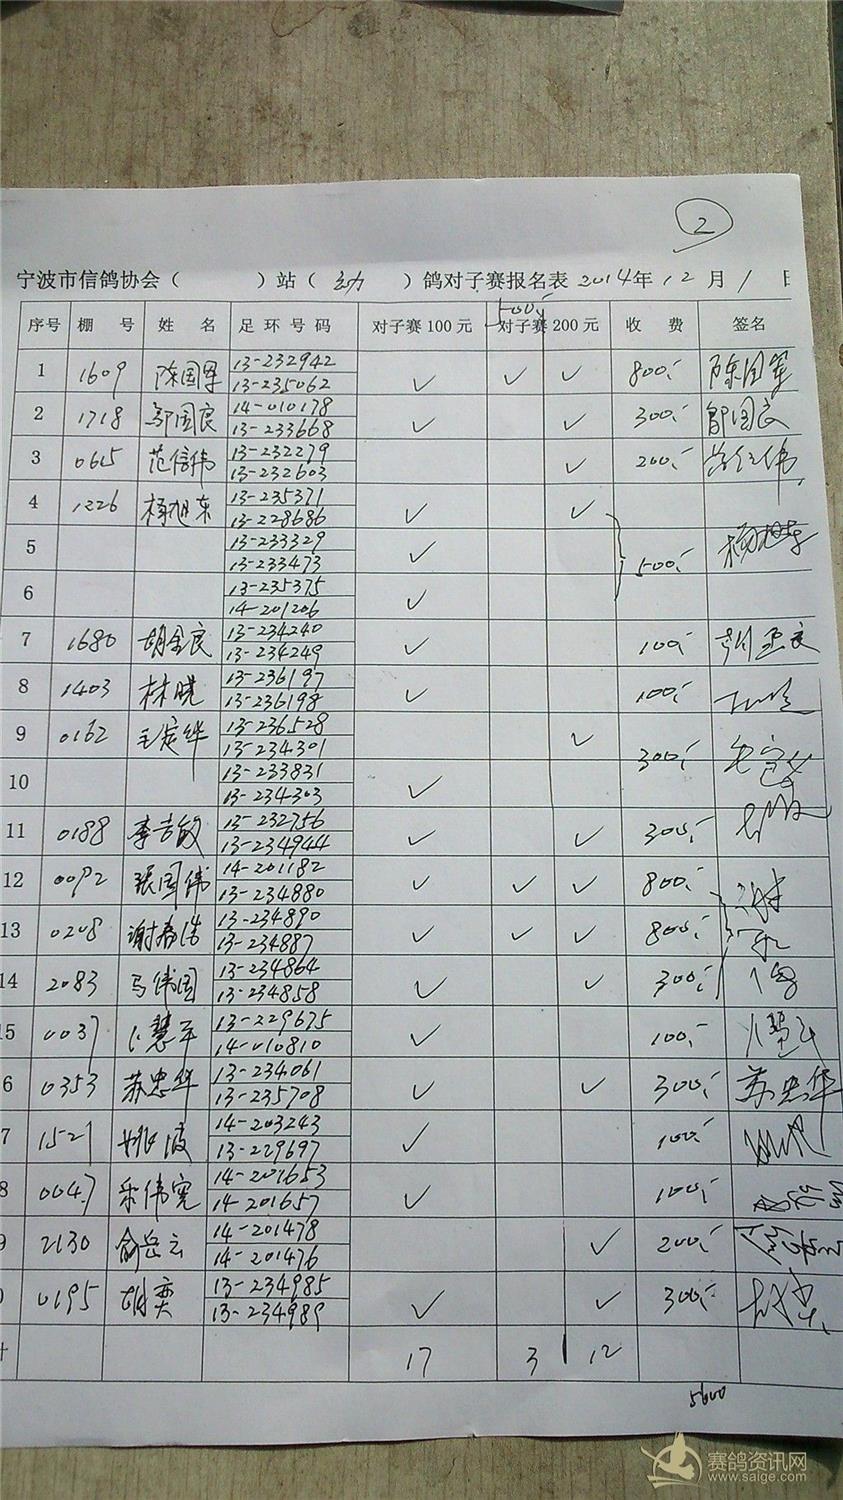 2
宁波市信鸽协会（ ）站（ 幼 ）鸽对子赛报名表 2014年 12 月 1 日
序号 棚 号 姓 名 足 环 号 码 对子赛 100 元 500.- 对子赛 200 元 收 费 签名
1 1609 陈国军 13-232942 13-235062 ✓ ✓ ✓ 800.- 陈国军
2 1718 邬国良 14-010178 13-233668 ✓ ✓ 300.- 邬国良
3 0615 范信伟 13-232279 13-232603 ✓ 200.-
4 1226 杨旭东 13-235371 13-228686 ✓ ✓
5 13-233329 13-233473 ✓ 500.- 杨旭东
6 13-235375 14-201206 ✓
7 1680 胡全良 13-234240 13-234249 ✓ 100.-
8 1403 林晓 13-236197 13-236198 ✓ 100.-
9 0162 毛定华 13-236528 13-234301 ✓ 300.-
10 13-233831 13-234303 ✓
11 0188 李吉敏 13-232756 13-234944 ✓ ✓ 300.-
12 0092 张国伟 14-201182 13-234880 ✓ ✓ ✓ 800.-
13 0208 谢春浩 13-234890 13-234887 ✓ ✓ ✓ 800.-
14 2083 马伟国 13-234864 13-234858 ✓ ✓ 300.-
15 0037 卜慧平 13-229675 14-010810 ✓ 100.-
6 0353 苏忠华 13-234061 13-235708 ✓ ✓ 300.- 苏忠华
7 1527 姚波 14-203243 13-229697 ✓ 100.-
8 0047 乐伟宽 14-201653 14-201657 ✓ 100.-
9 2130 俞岳云 14-201478 14-201476 ✓ 200.-
0 0195 胡奕 13-234985 13-234989 ✓ ✓ 300.-
计 17 3 12
5600
赛鸽资讯网
www.saige.com